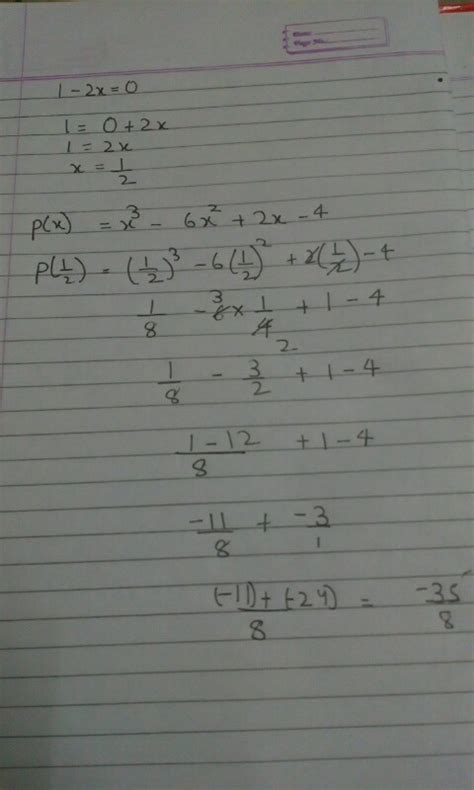 Name:
Page No.:
1 - 2x = 0
1 = 0 + 2x
1 = 2x
x = 1/2
p(x) = x³ - 6x² + 2x - 4
p(1/2) = (1/2)³ - 6(1/2)² + 2(1/2) - 4
1/8 - 6̶ 3 × 1/4̶ 2 + 1 - 4
1/8 - 3/2 + 1 - 4
1 - 12/8 + 1 - 4
-11/8 + -3/1
(-11) + (-24)/8 = -35/8